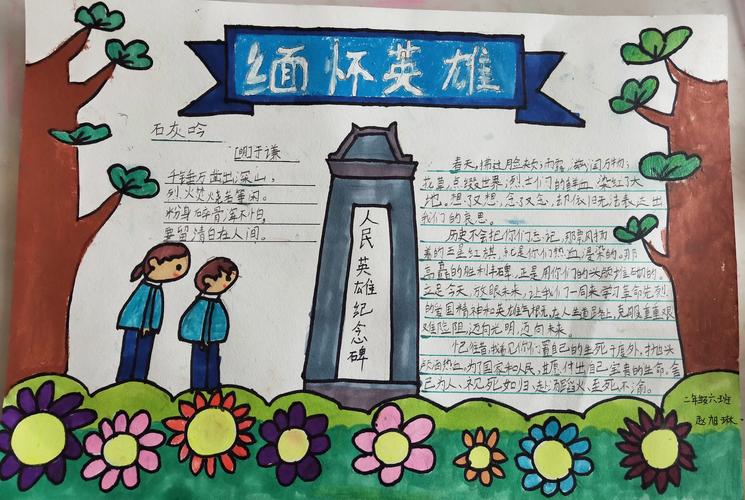 缅怀英雄
石灰吟
[明]于谦
千锤万凿出深山,
烈火焚烧若等闲。
粉身碎骨浑不怕,
要留清白在人间。
人民英雄纪念碑
春天,拂过脸夹;雨露,滋润万物;
花草,点缀世界,烈士们的鲜血,染红了大
地。想了又想,念了又念,却依旧无法表达出
我们的哀思。
历史不会把你们忘记,那
的五星红旗,就是你们热血浸染的。那
高矗的胜利丰碑,正是用你们的头颅堆砌的。
立足今天,放眼未来,让我们一同来学习革命先烈
的爱国精神和英雄气概吧,在人生道路上,克服重重艰
难险阻,迈向光明,迈向未来。
忆往昔,我看见你们置自己的生死于度外,抛头
颅洒热血。为了国家和人民,甘愿付出自己宝贵的生命。舍
己为人、视死如归、赴汤蹈火、至死不渝。
二年级六班
赵旭